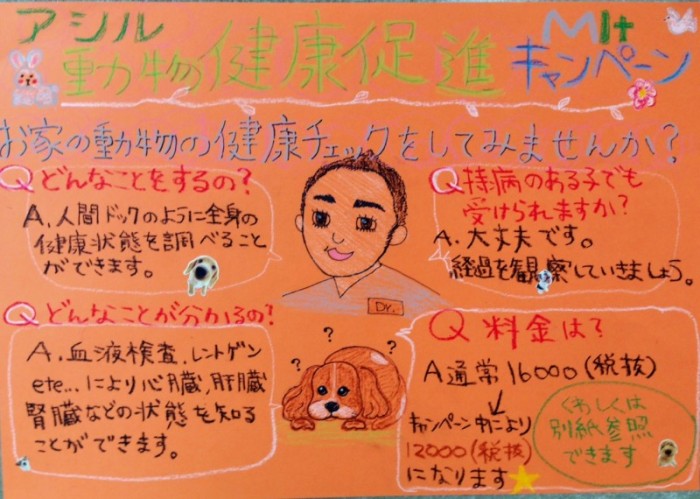 アシル
動物健康促進
M1t
キャンペーン
お家の動物の健康チェックをしてみませんか?
Qどんなことをするの?
A.人間ドックのように全身の
健康状態を調べること
ができます。
Q持病のある子でも
受けられますか?
A.大丈夫です。
経過を観察していきましょう。
Dr.
Qどんなことが分かるの?
A.血液検査、レントゲン
etc...により心臓、肝臓
腎臓などの状態を知る
ことができます。
? ? ?
Q 料金は?
A通常16000(税抜)
キャンペーン中により
12000(税抜)
になります
くわしくは
別紙参照
できます